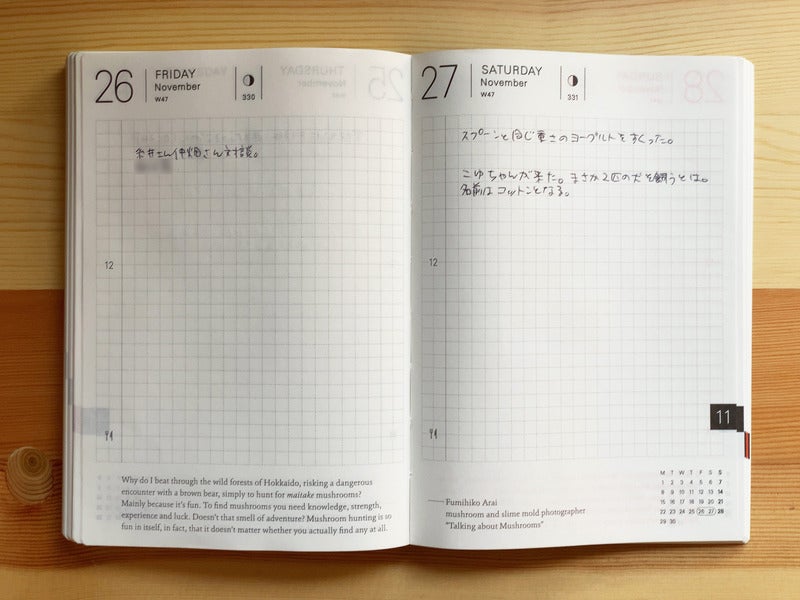 26
FRIDAY
November
W47
330
糸井さん仲畑さん対談。
12
Why do I beat through the wild forests of Hokkaido, risking a dangerous
encounter with a brown bear, simply to hunt for maitake mushrooms?
Mainly because it's fun. To find mushrooms you need knowledge, strength,
experience and luck. Doesn't that smell of adventure? Mushroom hunting is so
fun in itself, in fact, that it doesn't matter whether you actually find any at all.
27
SATURDAY
November
W47
331
スプーンと同じ重さのヨーグルトをすくった。
こゆちゃんが来た。まさか2匹の犬を飼うとは。
名前はコットンとなる。
12
11
Fumihiko Arai
mushroom and slime mold photographer
"Talking about Mushrooms"
M T W T F S S
1 2 3 4 5 6 7
8 9 10 11 12 13 14
15 16 17 18 19 20 21
22 23 24 25 26 27 28
29 30